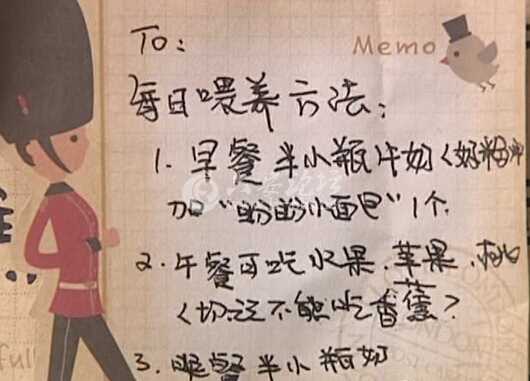 To:
Memo
每日喂养方法:
1. 早餐半小瓶牛奶(奶粉冲
加"盼盼小面包"1个.
2. 午餐可吃水果.苹果.桃
(切记不能吃香蕉?
3. 晚餐半小瓶奶